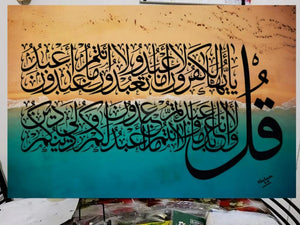 قل
يا أيها الكافرون لا أعبد ما تعبدون ولا أنتم عابدون ما أعبد
ولا أنا عابد ما عبدتم ولا أنتم عابدون ما أعبد لكم دينكم ولي دين